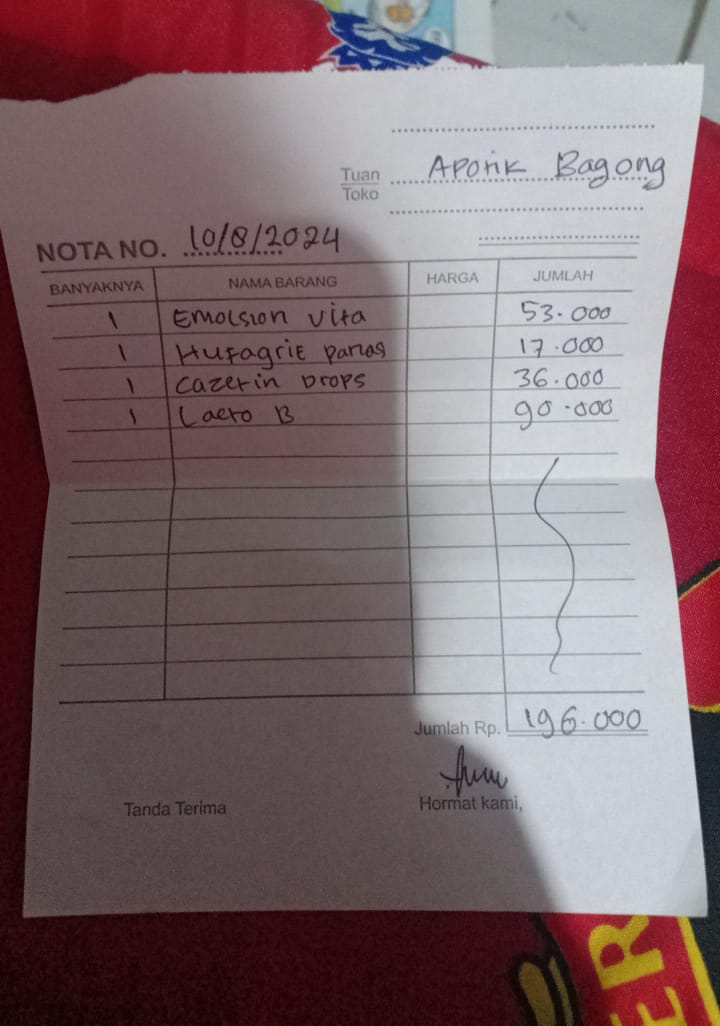 Tuan
Toko
Apotik Bagong
NOTA NO. 10/8/2024
BANYAKNYA NAMA BARANG HARGA JUMLAH
1 Emolsion Vita 53.000
1 Hufagrie panas 17.000
1 Cazetin Drops 36.000
1 Lacto B 90.000
Jumlah Rp. 196.000
Tanda Terima Hormat kami,
ER